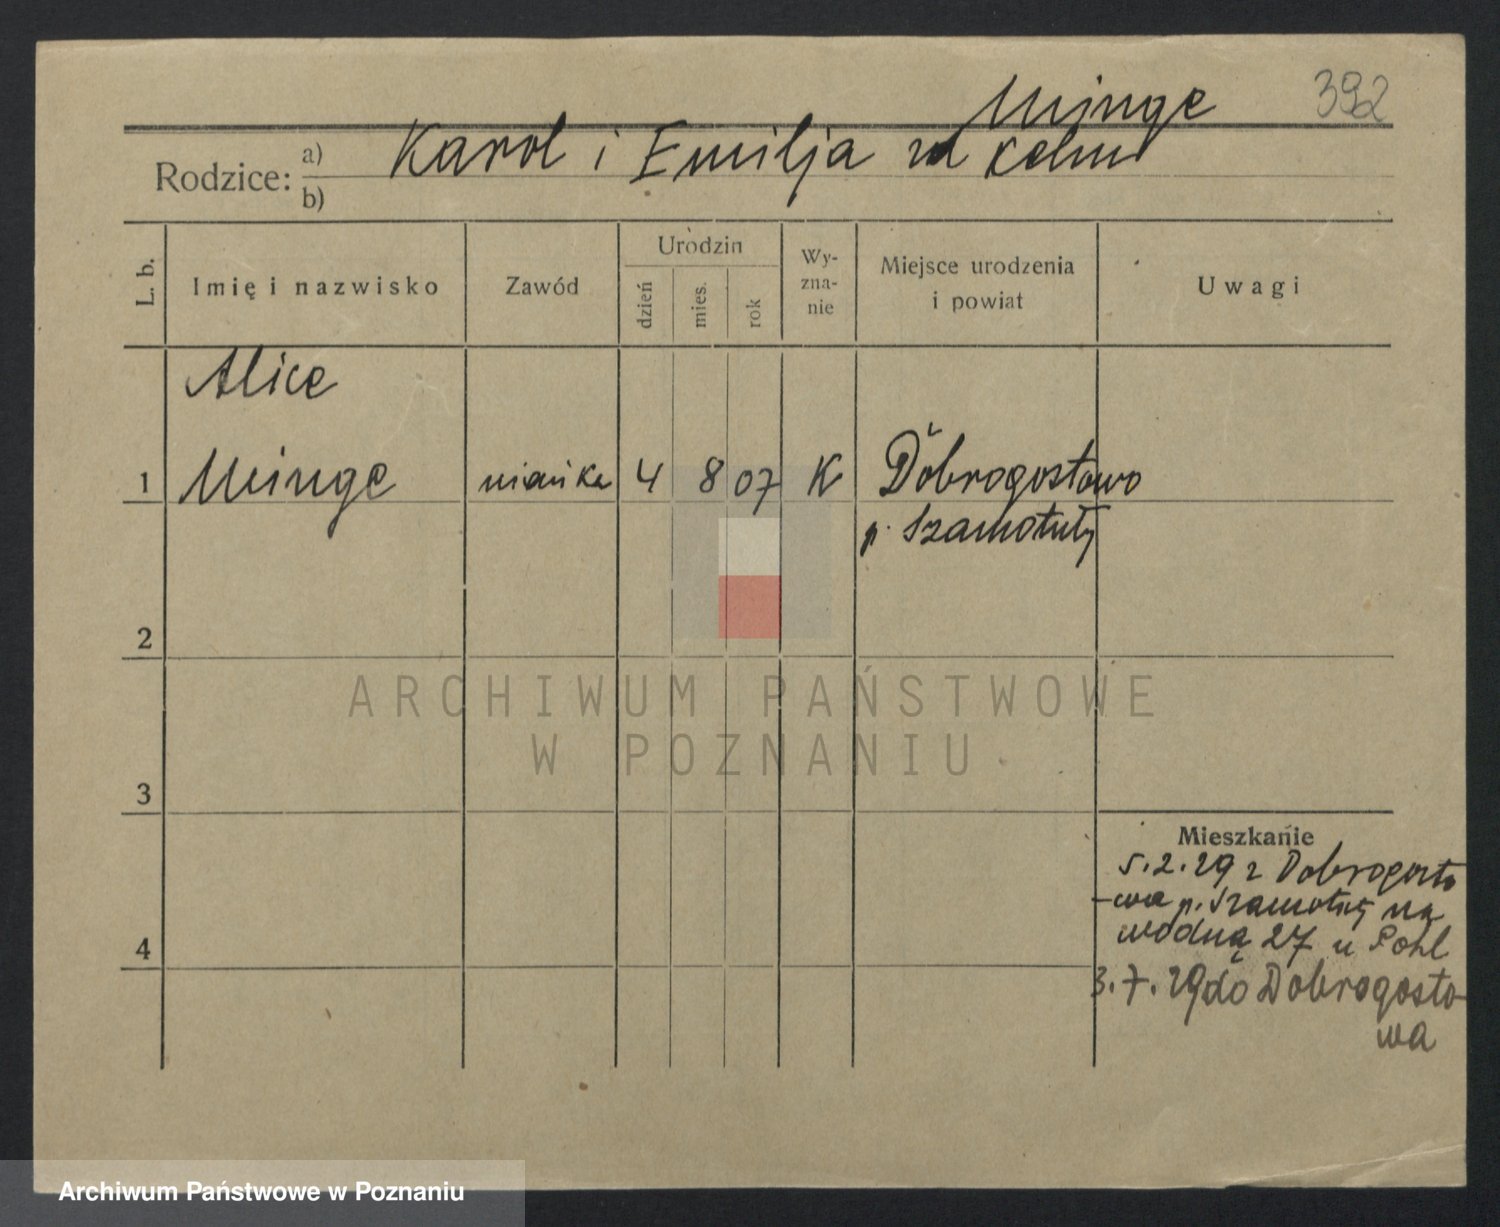 392
Minge
Karol i Emilja
Rodzice: a)
b)
L. b.
Imię i nazwisko
Zawód
Urodzin
dzień
mies.
rok
Wy-
zna-
nie
Miejsce urodzenia
i powiat
Uwagi
Alice
1 Minge niańka 4 8 07 K Dobrogostowo
p. Szamotuły
2
3
4
Mieszkanie
5.2.29 z Dobrogosto
-wa p. Szamotuły na
wodną 27 u Pohl
3.7.29 do Dobrogosto-
wa
ARCHIWUM PAŃSTWOWE
W POZNANIU
Archiwum Państwowe w Poznaniu